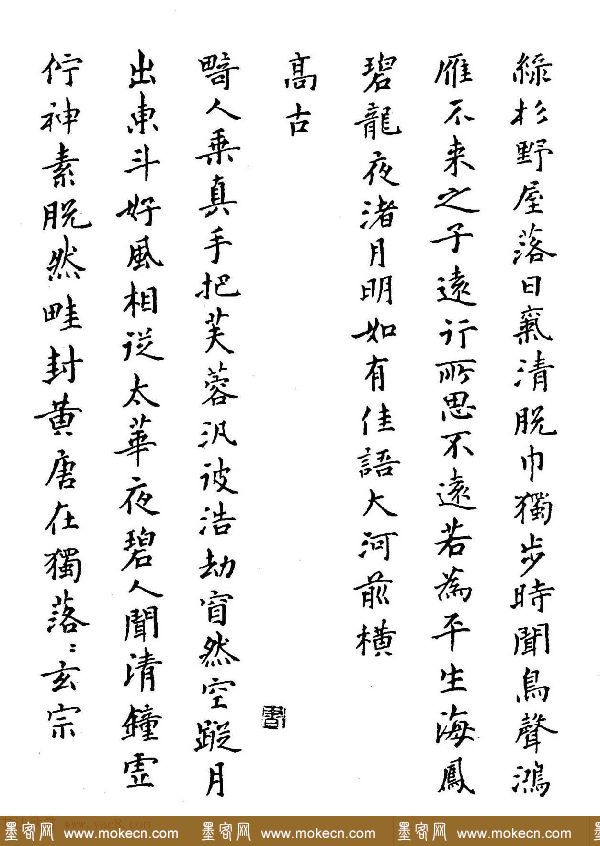 綠杉野屋落日氣清脫巾獨步時聞鳥聲鴻
雁不来之子遠行所思不遠若為平生海鳳
碧龍夜渚月明如有佳語大河前橫
高古
畸人乘真手把芙蓉汎彼浩劫窅然空蹤月
出東斗好風相從太華夜碧人聞清鐘虛
佇神素脫然畦封黃唐在獨落〻玄宗
墨客网 www.mokecn.com 墨客网 www.mokecn.com 墨客网 www.mokecn.com